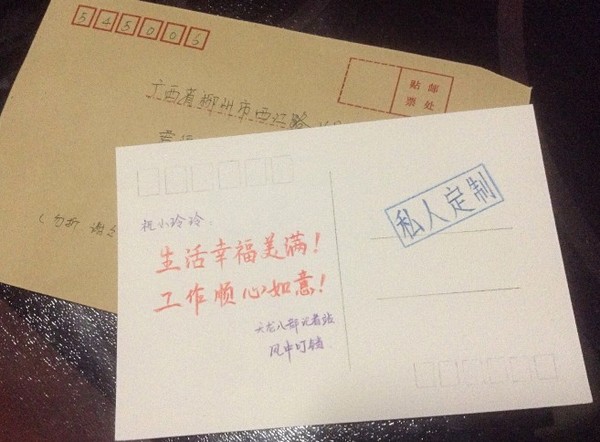 545006
贴邮
票处
广西省柳州市西江路
(勿折 谢
私人定制
祝小玲玲:
生活幸福美满!
工作顺心如意!
天龙八部记者站
风中叮铛